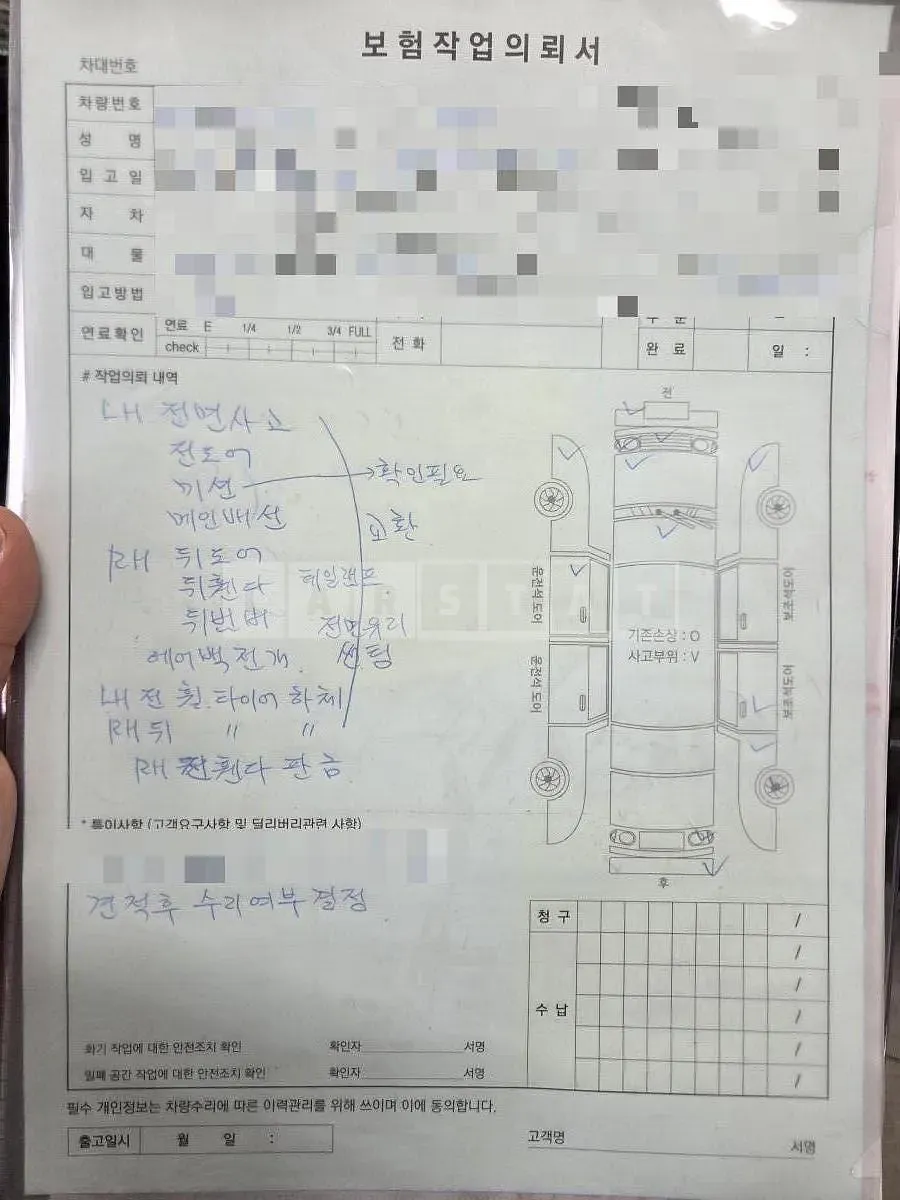 보험작업의뢰서
차대번호
차량번호
성 명
입 고 일
자 차
대 물
입고방법
연료확인 연료 E 1/4 1/2 3/4 FULL
check 전 화 완 료 일 :
# 작업의뢰 내역
전
LH 전면사고
전도어
미션 → 확인필요
메인배선 교환
RH 뒤도어
뒤휀다 테일램프
뒤범버 전면유리
에어백전개. 썬팅
LH 전 휠.타이어 하체
RH 뒤 〃 〃
RH 전휀다 판금
운전석 도어
보조석도어
기존손상 : O
사고부위 : V
운전석 도어
보조석도어
후
* 특이사항 (고객요구사항 및 딜리버리관련 사항)
견적후 수리여부 결정
청 구 /
/
/
수 납 /
/
/
화기 작업에 대한 안전조치 확인 확인자 서명
밀폐 공간 작업에 대한 안전조치 확인 확인자 서명
필수 개인정보는 차량수리에 따른 이력관리를 위해 쓰이며 이에 동의합니다.
출고일시 월 일 :
고객명 서명